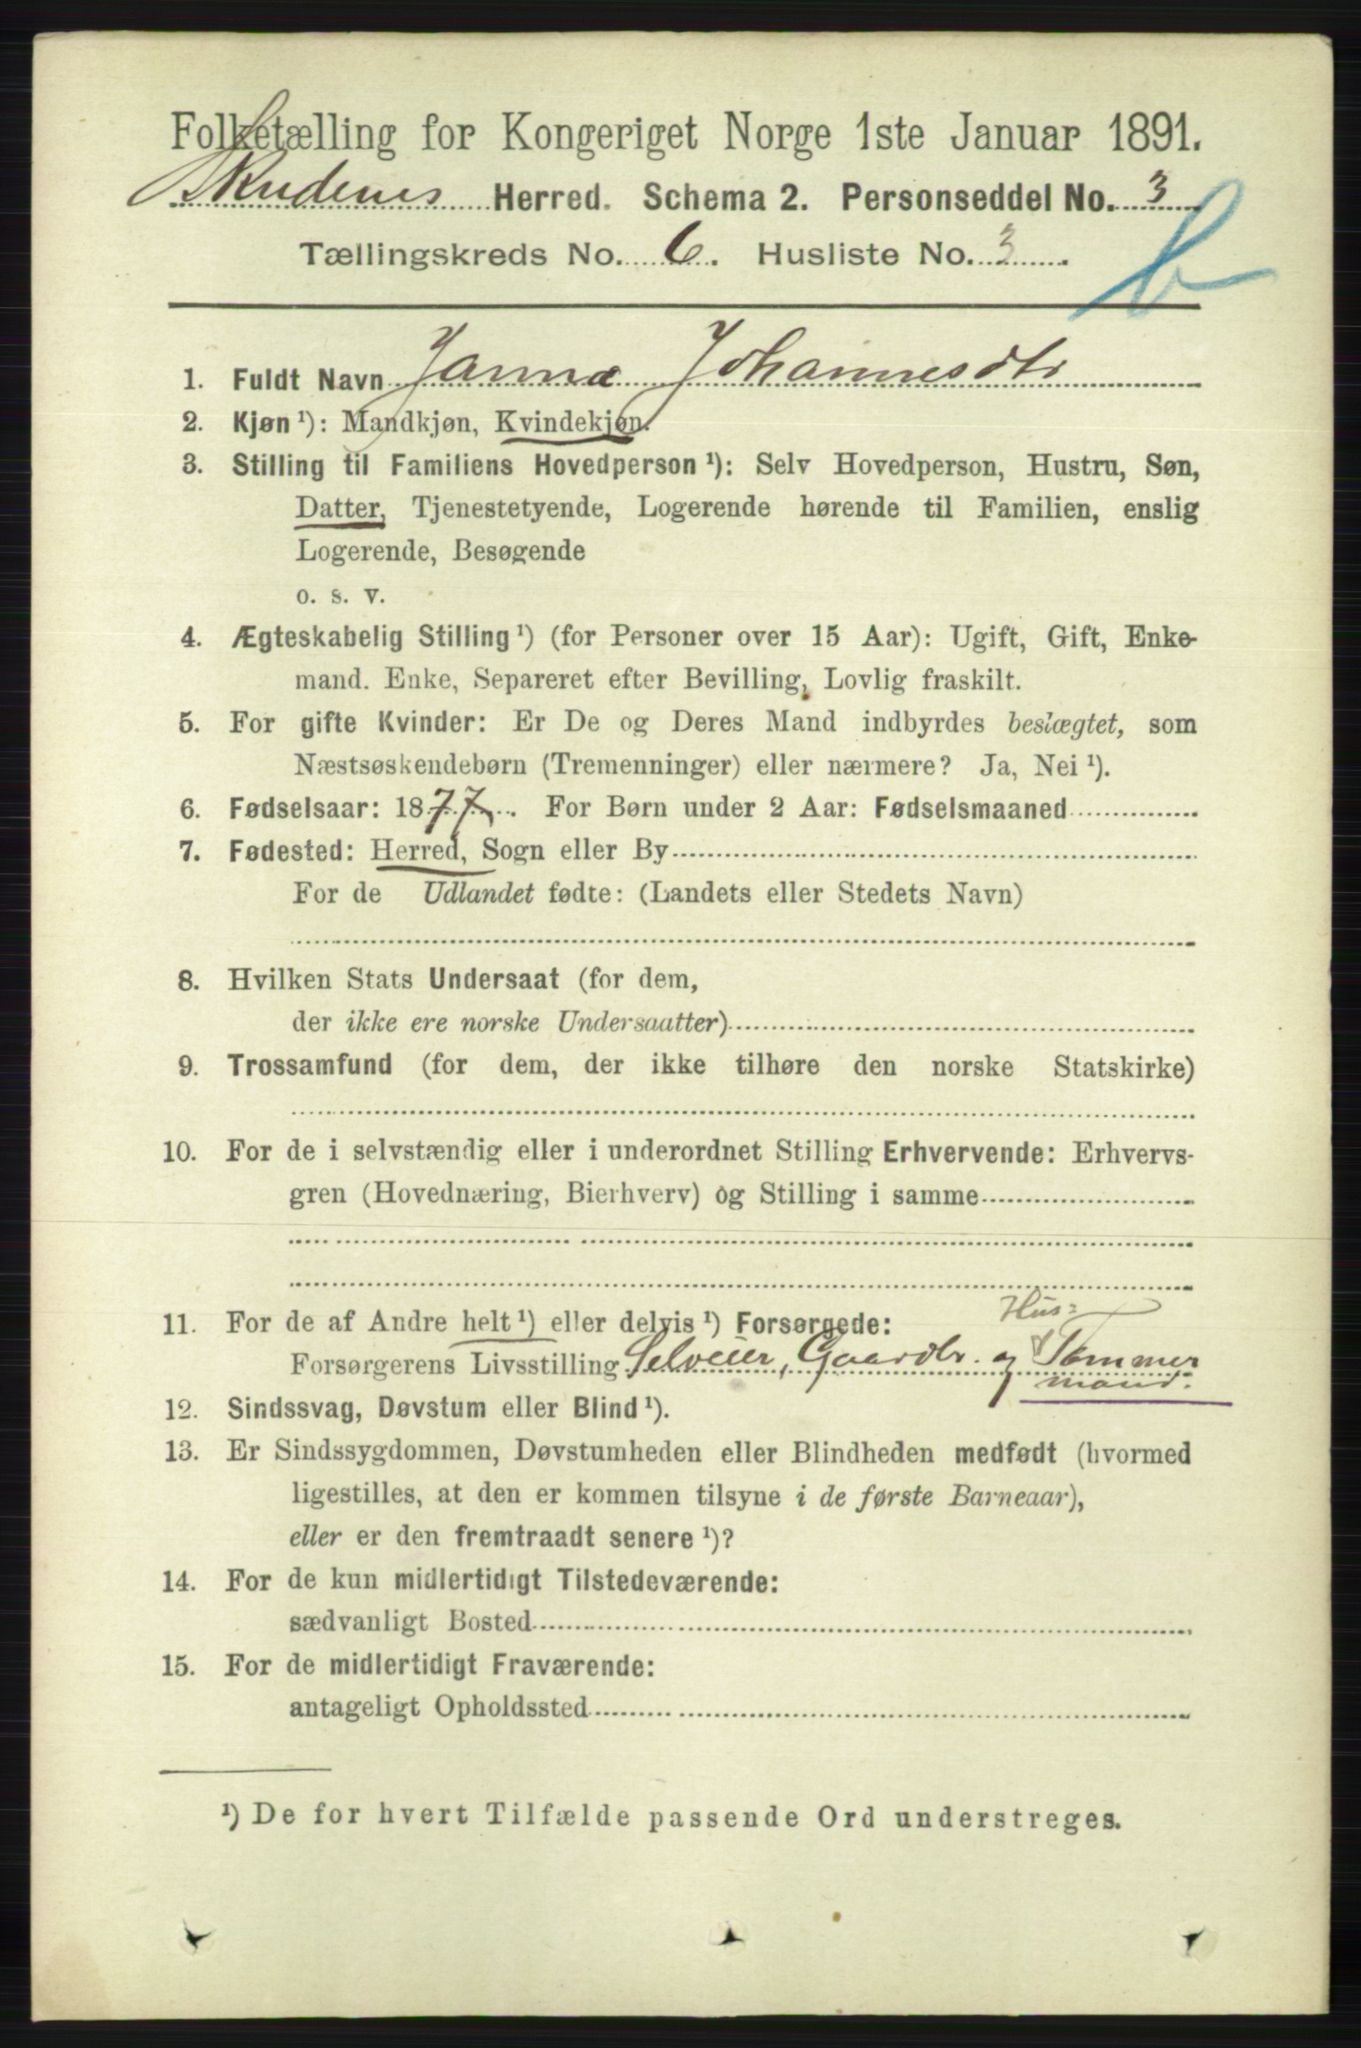 Folketælling for Kongeriget Norge 1ste Januar 1891.
Skudenes Herred. Schema 2. Personseddel No. 3
Tællingskreds No. 6. Husliste No. 3
b
1. Fuldt Navn Janna Johannesdtr
2. Kjøn ¹): Mandkjøn, Kvindekjøn.
3. Stilling til Familiens Hovedperson ¹): Selv Hovedperson, Hustru, Søn,
Datter, Tjenestetyende, Logerende hørende til Familien, enslig
Logerende, Besøgende
o. s. v.
4. Ægteskabelig Stilling ¹) (for Personer over 15 Aar): Ugift, Gift, Enke-
mand. Enke, Separeret efter Bevilling, Lovlig fraskilt.
5. For gifte Kvinder: Er De og Deres Mand indbyrdes beslægtet, som
Næstsøskendebørn (Tremenninger) eller nærmere? Ja, Nei ¹).
6. Fødselsaar: 1877. For Børn under 2 Aar: Fødselsmaaned
7. Fødested: Herred, Sogn eller By
For de Udlandet fødte: (Landets eller Stedets Navn)
8. Hvilken Stats Undersaat (for dem,
der ikke ere norske Undersaatter)
9. Trossamfund (for dem, der ikke tilhøre den norske Statskirke)
10. For de i selvstændig eller i underordnet Stilling Erhvervende: Erhvervs-
gren (Hovednæring, Bierhverv) og Stilling i samme
11. For de af Andre helt ¹) eller delvis ¹) Forsørgede:
Hus-
Forsørgerens Livsstilling Selveier, Gaardbr. og Tømmer
mand.
12. Sindssvag, Døvstum eller Blind ¹).
13. Er Sindssygdommen, Døvstumheden eller Blindheden medfødt (hvormed
ligestilles, at den er kommen tilsyne i de første Barneaar),
eller er den fremtraadt senere ¹)?
14. For de kun midlertidigt Tilstedeværende:
sædvanligt Bosted
15. For de midlertidigt Fraværende:
antageligt Opholdssted
¹) De for hvert Tilfælde passende Ord understreges.